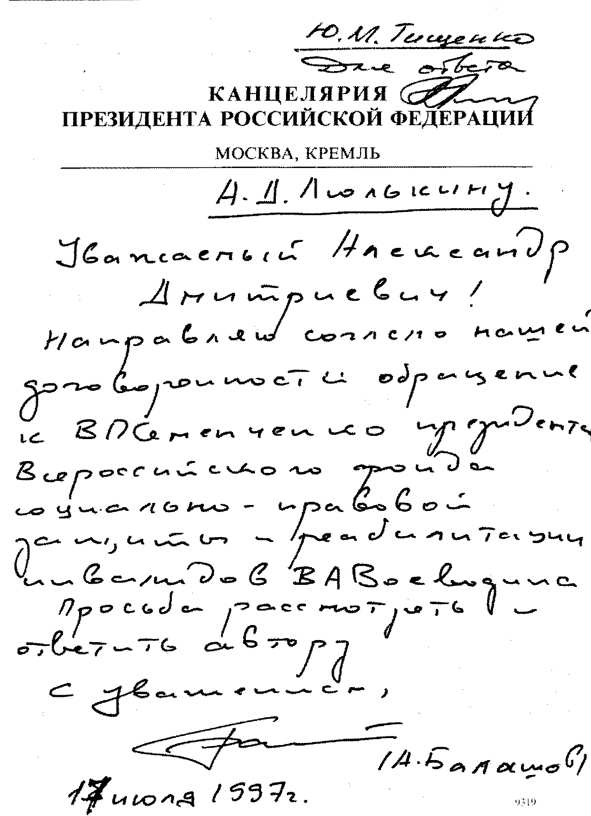 Ю.М. Тищенко
Для ответа
КАНЦЕЛЯРИЯ
ПРЕЗИДЕНТА РОССИЙСКОЙ ФЕДЕРАЦИИ
МОСКВА, КРЕМЛЬ
А.Д. Люлькину.
Уважаемый Александр
Дмитриевич!
Направляю согласно нашей
договоренности обращение
к ВПСеменченко президента
Всероссийского фонда
социально-правовой
защиты и реабилитации
инвалидов ВАВоеводина
Просьба рассмотреть и
ответить автору
С уважением,
/А.Балашов/
17 июля 1997г.
9319